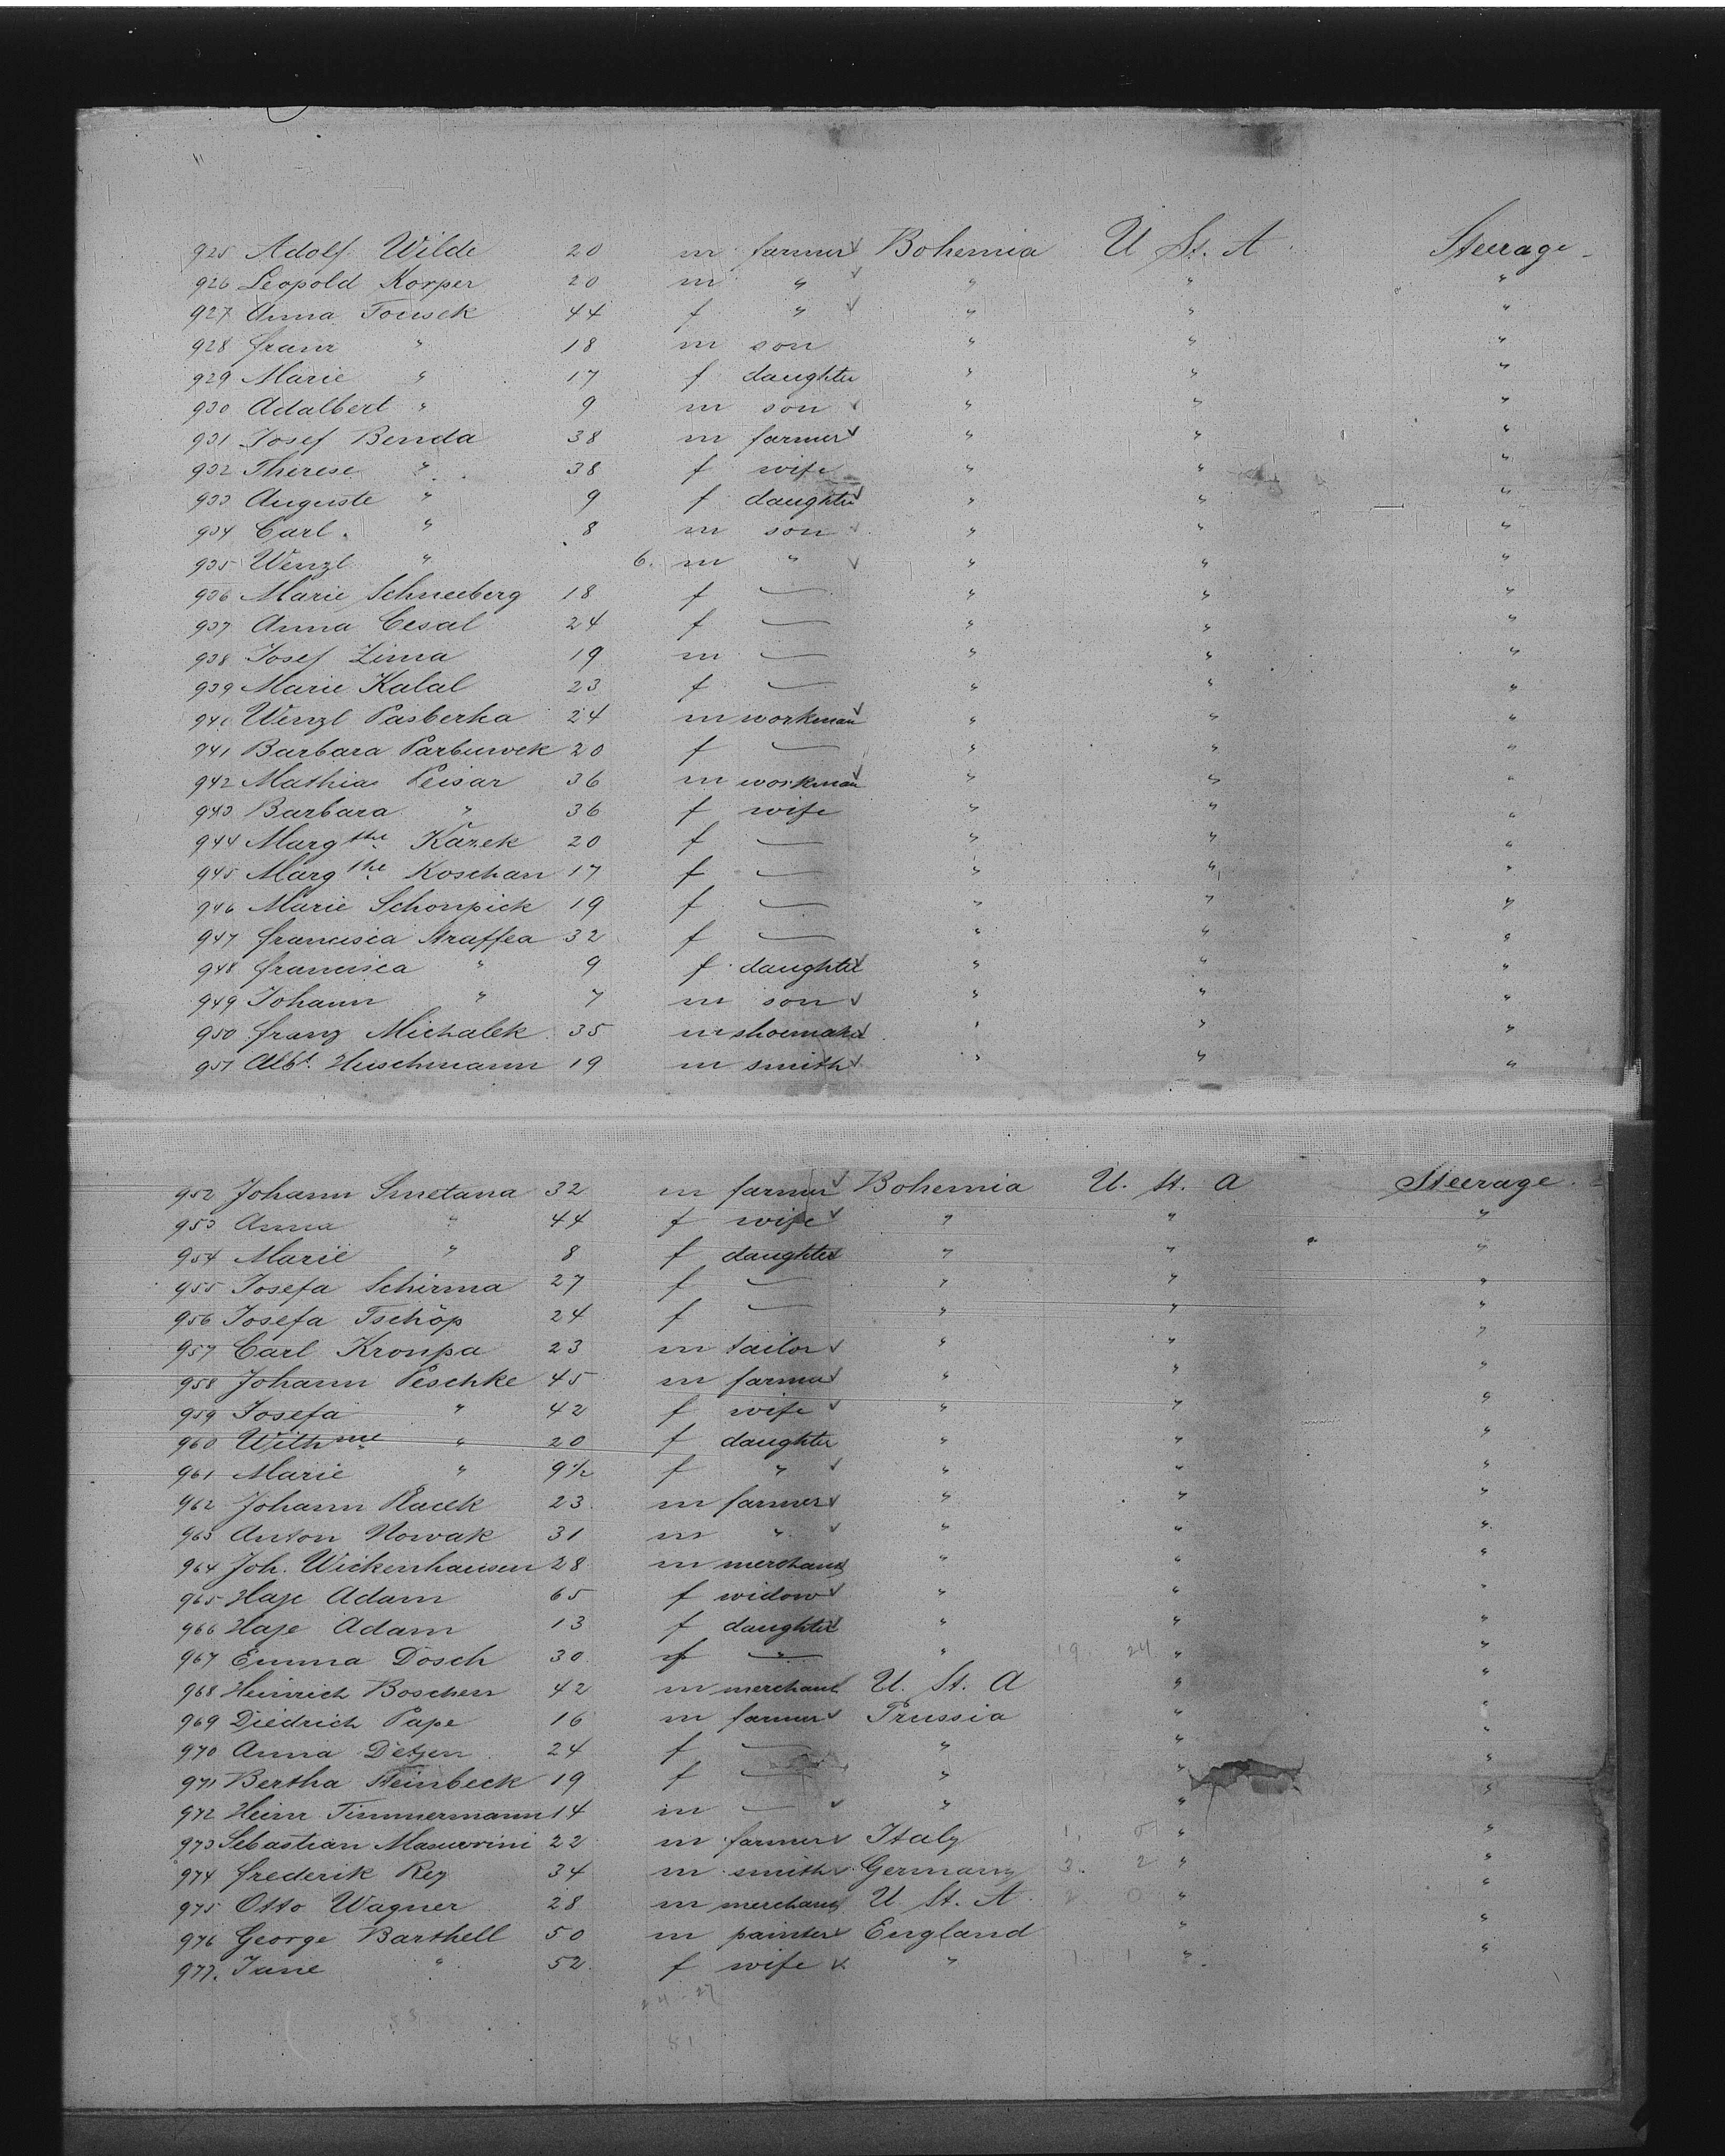 925 Adolf Wilde 20 m farmer Bohemia U St. A. Steerage
926 Leopold Korper 20 m " " " "
927 Anna Tousek 44 f " " " "
928 Franz " 18 m son " " "
929 Marie " 17 f daughter " " "
930 Adalbert " 9 m son " " "
931 Josef Benda 38 m farmer " " "
932 Therese " 38 f wife " " "
933 Auguste " 9 f daughter " " "
934 Carl " 8 m son " " "
935 Wenzl " 6. m " " " "
936 Marie Schneeberg 18 f — " " "
937 Anna Cesal 24 f — " " "
938 Josef Zima 19 m — " " "
939 Marie Kalal 23 f — " " "
940 Wenzl Pasberka 24 m workman " " "
941 Barbara 20 f — " " "
942 Mathias Peisar 36 m workman " " "
943 Barbara " 36 f wife " " "
944 Marg the Kazek 20 f — " " "
945 Marg the Koschan 17 f — " " "
946 Marie Schonpick 19 f — " " "
947 Francisca Straffea 32 f — " " "
948 Francisca " 9 f daughter " " "
949 Johann " 7 m son " " "
950 Franz Michalek 35 m shoemaker " " "
951 Albt. Huschmann 19 m smith " " "
952 Johann Smetana 32 m farmer Bohemia U. St. A Steerage
953 Anna " 44 f wife " " "
954 Marie " 8 f daughter " " "
955 Josefa Schirma 27 f — " " "
956 Josefa Tschöp 24 f — " " "
957 Carl Kroupa 23 m tailor " " "
958 Johann Peschke 45 m farmer " " "
959 Josefa " 42 f wife " " "
960 Wilhme " 20 f daughter " " "
961 Marie " 9½ f " " " "
962 Johann Placek 23 m farmer " " "
963 Anton Nowak 31 m " " " "
964 Joh. Wickenhausen 28 m merchant " " "
965 Haje Adam 65 f widow " " "
966 Haje Adam 13 f daughter " " "
967 Emma Dosch 30 f — " 19 24 " "
968 Heinrich Boschen 42 m merchant U. St. A " "
969 Diedrich Pape 16 m farmer Prussia " "
970 Anna Detjen 24 f — " " "
971 Bertha Steinbeck 19 f — " " "
972 Heinr Timmermann 14 m — " " "
973 Sebastian 22 m farmer Italy 1. 0 " "
974 Frederik Rey 34 m smith Germany 3. 2 " "
975 Otto Wagner 28 m merchant U St. A 2. 0 " "
976 George Barthell 50 m painter England " "
977. Jane " 52 f wife " 1 1 " "
24-27
53
51